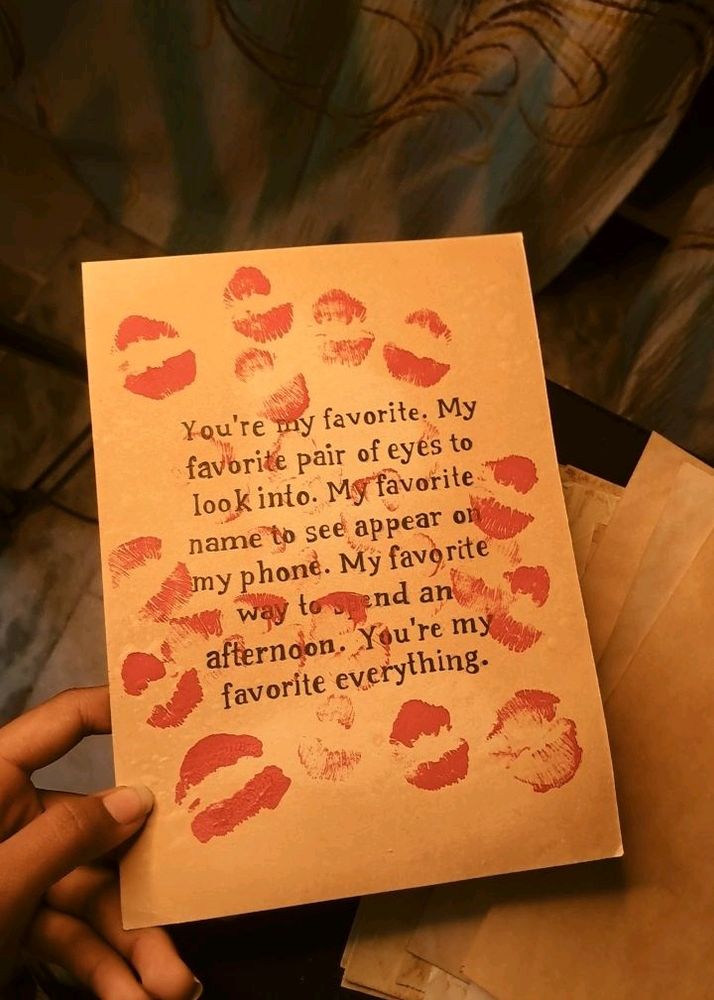 You're my favorite. My
favorite pair of eyes to
look into. My favorite
name to see appear on
my phone. My favorite
way to spend an
afternoon. You're my
favorite everything.